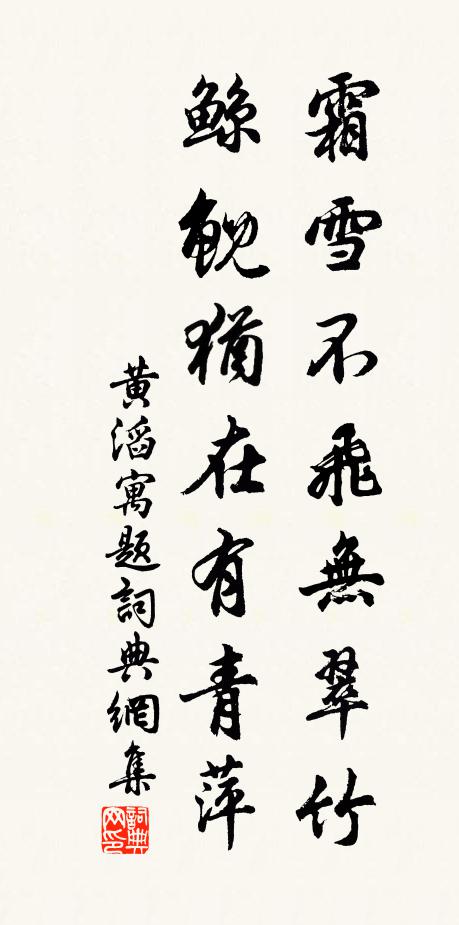 霜雪不飛無翠竹
鯨鯢猶在有青萍
黃滔寓題詞典網集
詞典网印